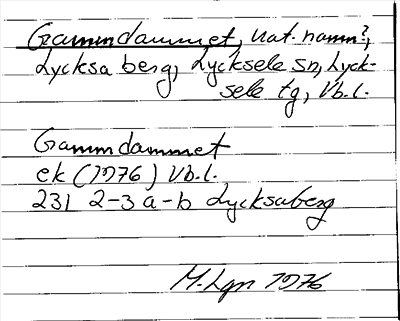 Grammdammet, nat. namn?,
Lycksaberg, Lycksele sn, Lyck-
sele tg, Vb. l.
Grammdammet
ek (1976) Vb. l.
231 2-3 a-b Lycksaberg
M. Lgn 1976